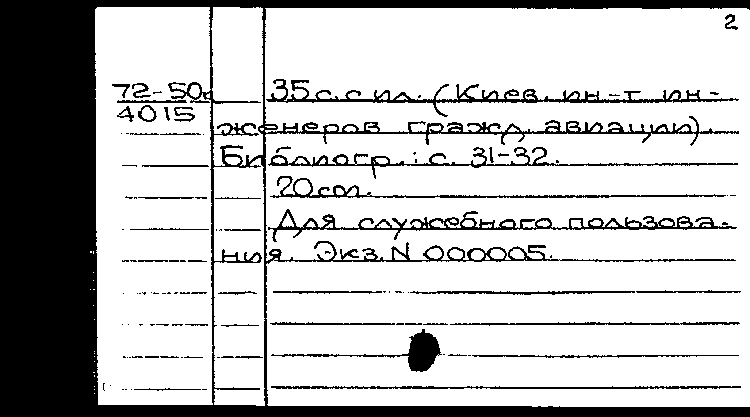 2
72-50д 35 с. с ил. (Киев. ин-т ин-
4015
женеров гражд. авиации).
Библиогр.: с. 31-32.
20 см.
Для служебного пользова-
ния. Экз. N 000005.